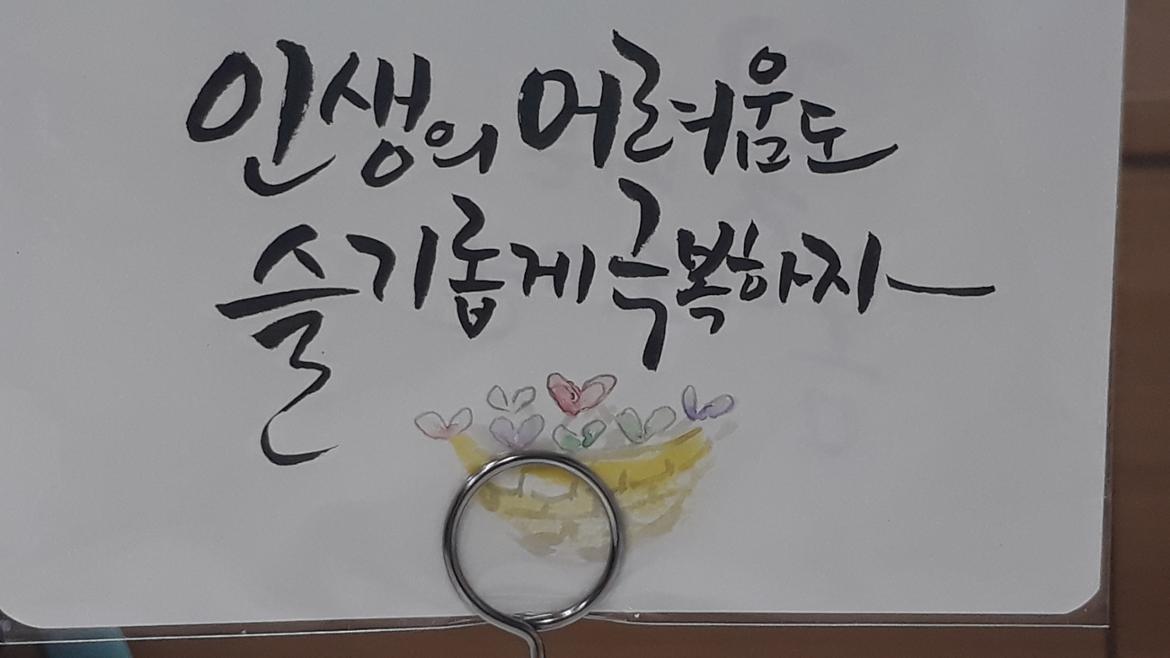 인생의 어려움도
슬기롭게 극복하자